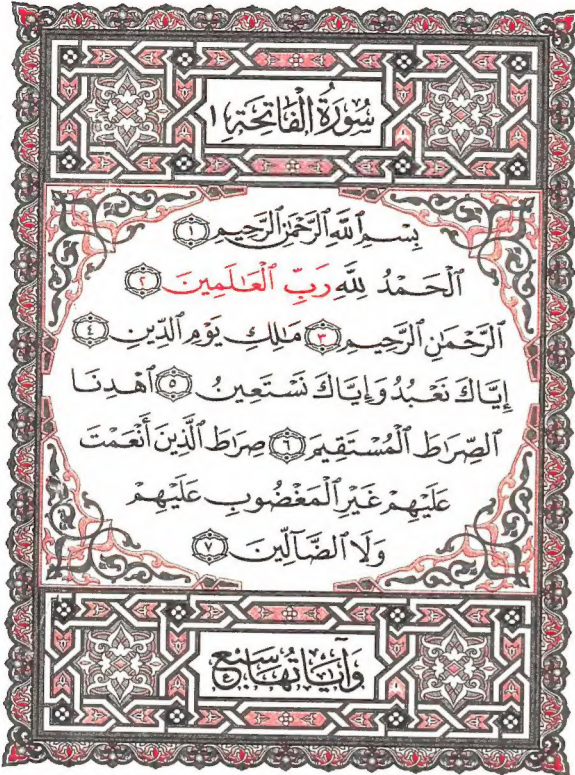 سُورَةُ الْفَاتِحَةِ ١
بِسْمِ ٱللَّهِ ٱلرَّحْمَٰنِ ٱلرَّحِيمِ ١
ٱلْحَمْدُ لِلَّهِ رَبِّ ٱلْعَٰلَمِينَ ٢
ٱلرَّحْمَٰنِ ٱلرَّحِيمِ ٣ مَٰلِكِ يَوْمِ ٱلدِّينِ ٤
إِيَّاكَ نَعْبُدُ وَإِيَّاكَ نَسْتَعِينُ ٥ ٱهْدِنَا
ٱلصِّرَٰطَ ٱلْمُسْتَقِيمَ ٦ صِرَٰطَ ٱلَّذِينَ أَنْعَمْتَ
عَلَيْهِمْ غَيْرِ ٱلْمَغْضُوبِ عَلَيْهِمْ
وَلَا ٱلضَّآلِّينَ ٧
وَآيَاتُهَا سَبْعٌ